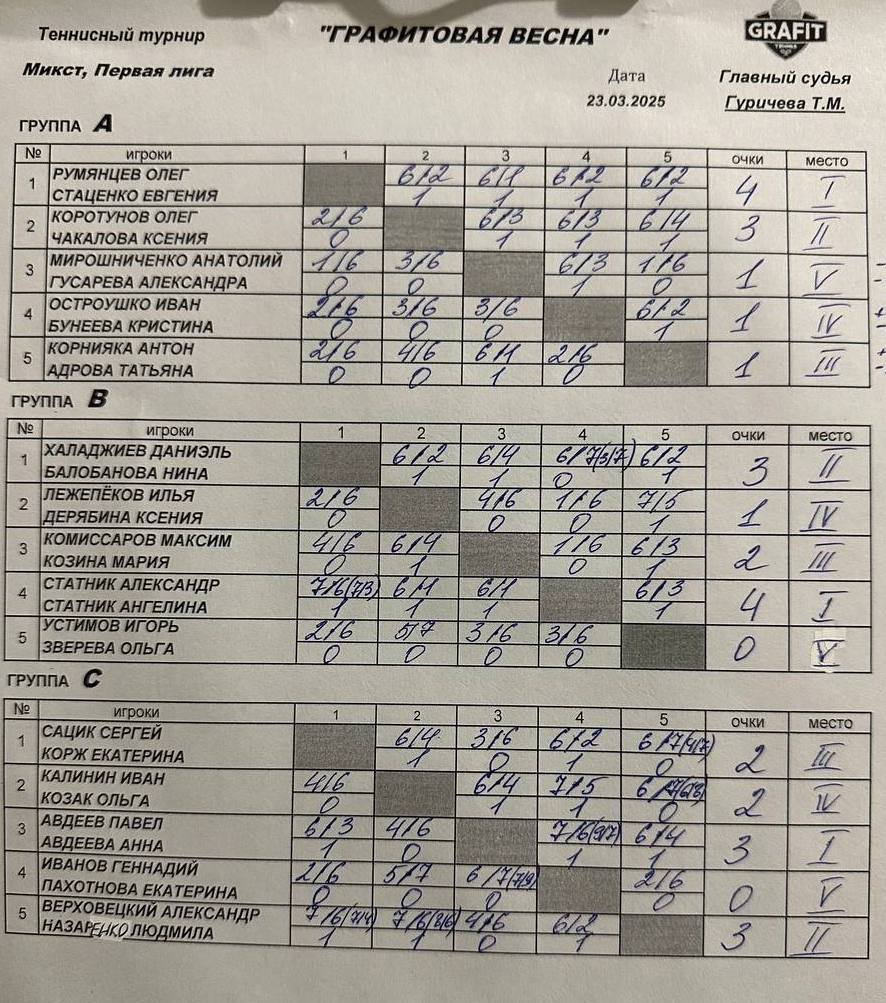 Теннисный турнир "ГРАФИТОВАЯ ВЕСНА" GRAFIT
TENNIS
Микст, Первая лига Дата Главный судья
23.03.2025 Гуричева Т.М.
ГРУППА A
№ игроки 1 2 3 4 5 очки место
1 РУМЯНЦЕВ ОЛЕГ 6/2 6/1 6/2 6/2 4 I
СТАЦЕНКО ЕВГЕНИЯ 1 1 1 1
2 КОРОТУНОВ ОЛЕГ 2/6 6/3 6/3 6/4 3 II
ЧАКАЛОВА КСЕНИЯ 0 1 1 1
3 МИРОШНИЧЕНКО АНАТОЛИЙ 1/6 3/6 6/3 1/6 1 V
ГУСАРЕВА АЛЕКСАНДРА 0 0 1 0
4 ОСТРОУШКО ИВАН 2/6 3/6 3/6 6/2 1 IV
БУНЕЕВА КРИСТИНА 0 0 0 1
5 КОРНИЯКА АНТОН 2/6 4/6 6/1 2/6 1 III
АДРОВА ТАТЬЯНА 0 0 1 0
ГРУППА B
№ игроки 1 2 3 4 5 очки место
1 ХАЛАДЖИЕВ ДАНИЭЛЬ 6/2 6/4 6/7(3/7) 6/2 3 II
БАЛОБАНОВА НИНА 1 1 0 1
2 ЛЕЖЕПЁКОВ ИЛЬЯ 2/6 4/6 1/6 7/5 1 IV
ДЕРЯБИНА КСЕНИЯ 0 0 0 1
3 КОМИССАРОВ МАКСИМ 4/6 6/4 1/6 6/3 2 III
КОЗИНА МАРИЯ 0 1 0 1
4 СТАТНИК АЛЕКСАНДР 7/6(7/3) 6/1 6/1 6/3 4 I
СТАТНИК АНГЕЛИНА 1 1 1 1
5 УСТИМОВ ИГОРЬ 2/6 5/7 3/6 3/6 0 V
ЗВЕРЕВА ОЛЬГА 0 0 0 0
ГРУППА C
№ игроки 1 2 3 4 5 очки место
1 САЦИК СЕРГЕЙ 6/4 3/6 6/2 6/7(4/7) 2 III
КОРЖ ЕКАТЕРИНА 1 0 1 0
2 КАЛИНИН ИВАН 4/6 6/4 7/5 2 IV
КОЗАК ОЛЬГА 0 1 1 0
3 АВДЕЕВ ПАВЕЛ 6/3 4/6 7/6(9/7) 6/4 3 I
АВДЕЕВА АННА 1 0 1 1
4 ИВАНОВ ГЕННАДИЙ 2/6 5/7 6/7(7/9) 2/6 0 V
ПАХОТНОВА ЕКАТЕРИНА 0 0 0 0
5 ВЕРХОВЕЦКИЙ АЛЕКСАНДР 7/6(7/4) 7/6(8/6) 4/6 6/2 3 II
НАЗАРЕНКО ЛЮДМИЛА 1 1 0 1